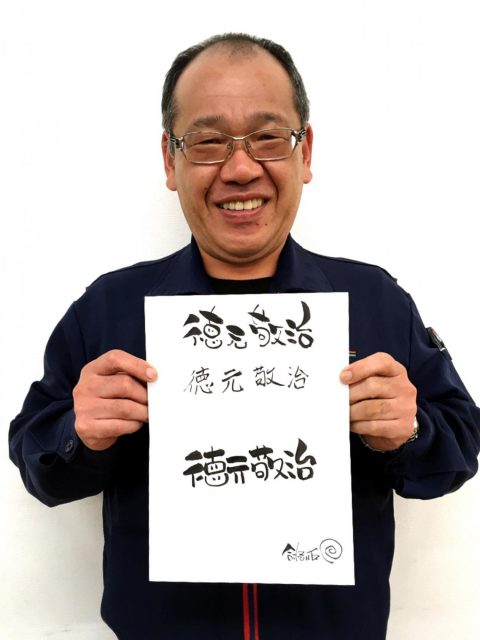 徳元敬治
徳元敬治
徳元敬治